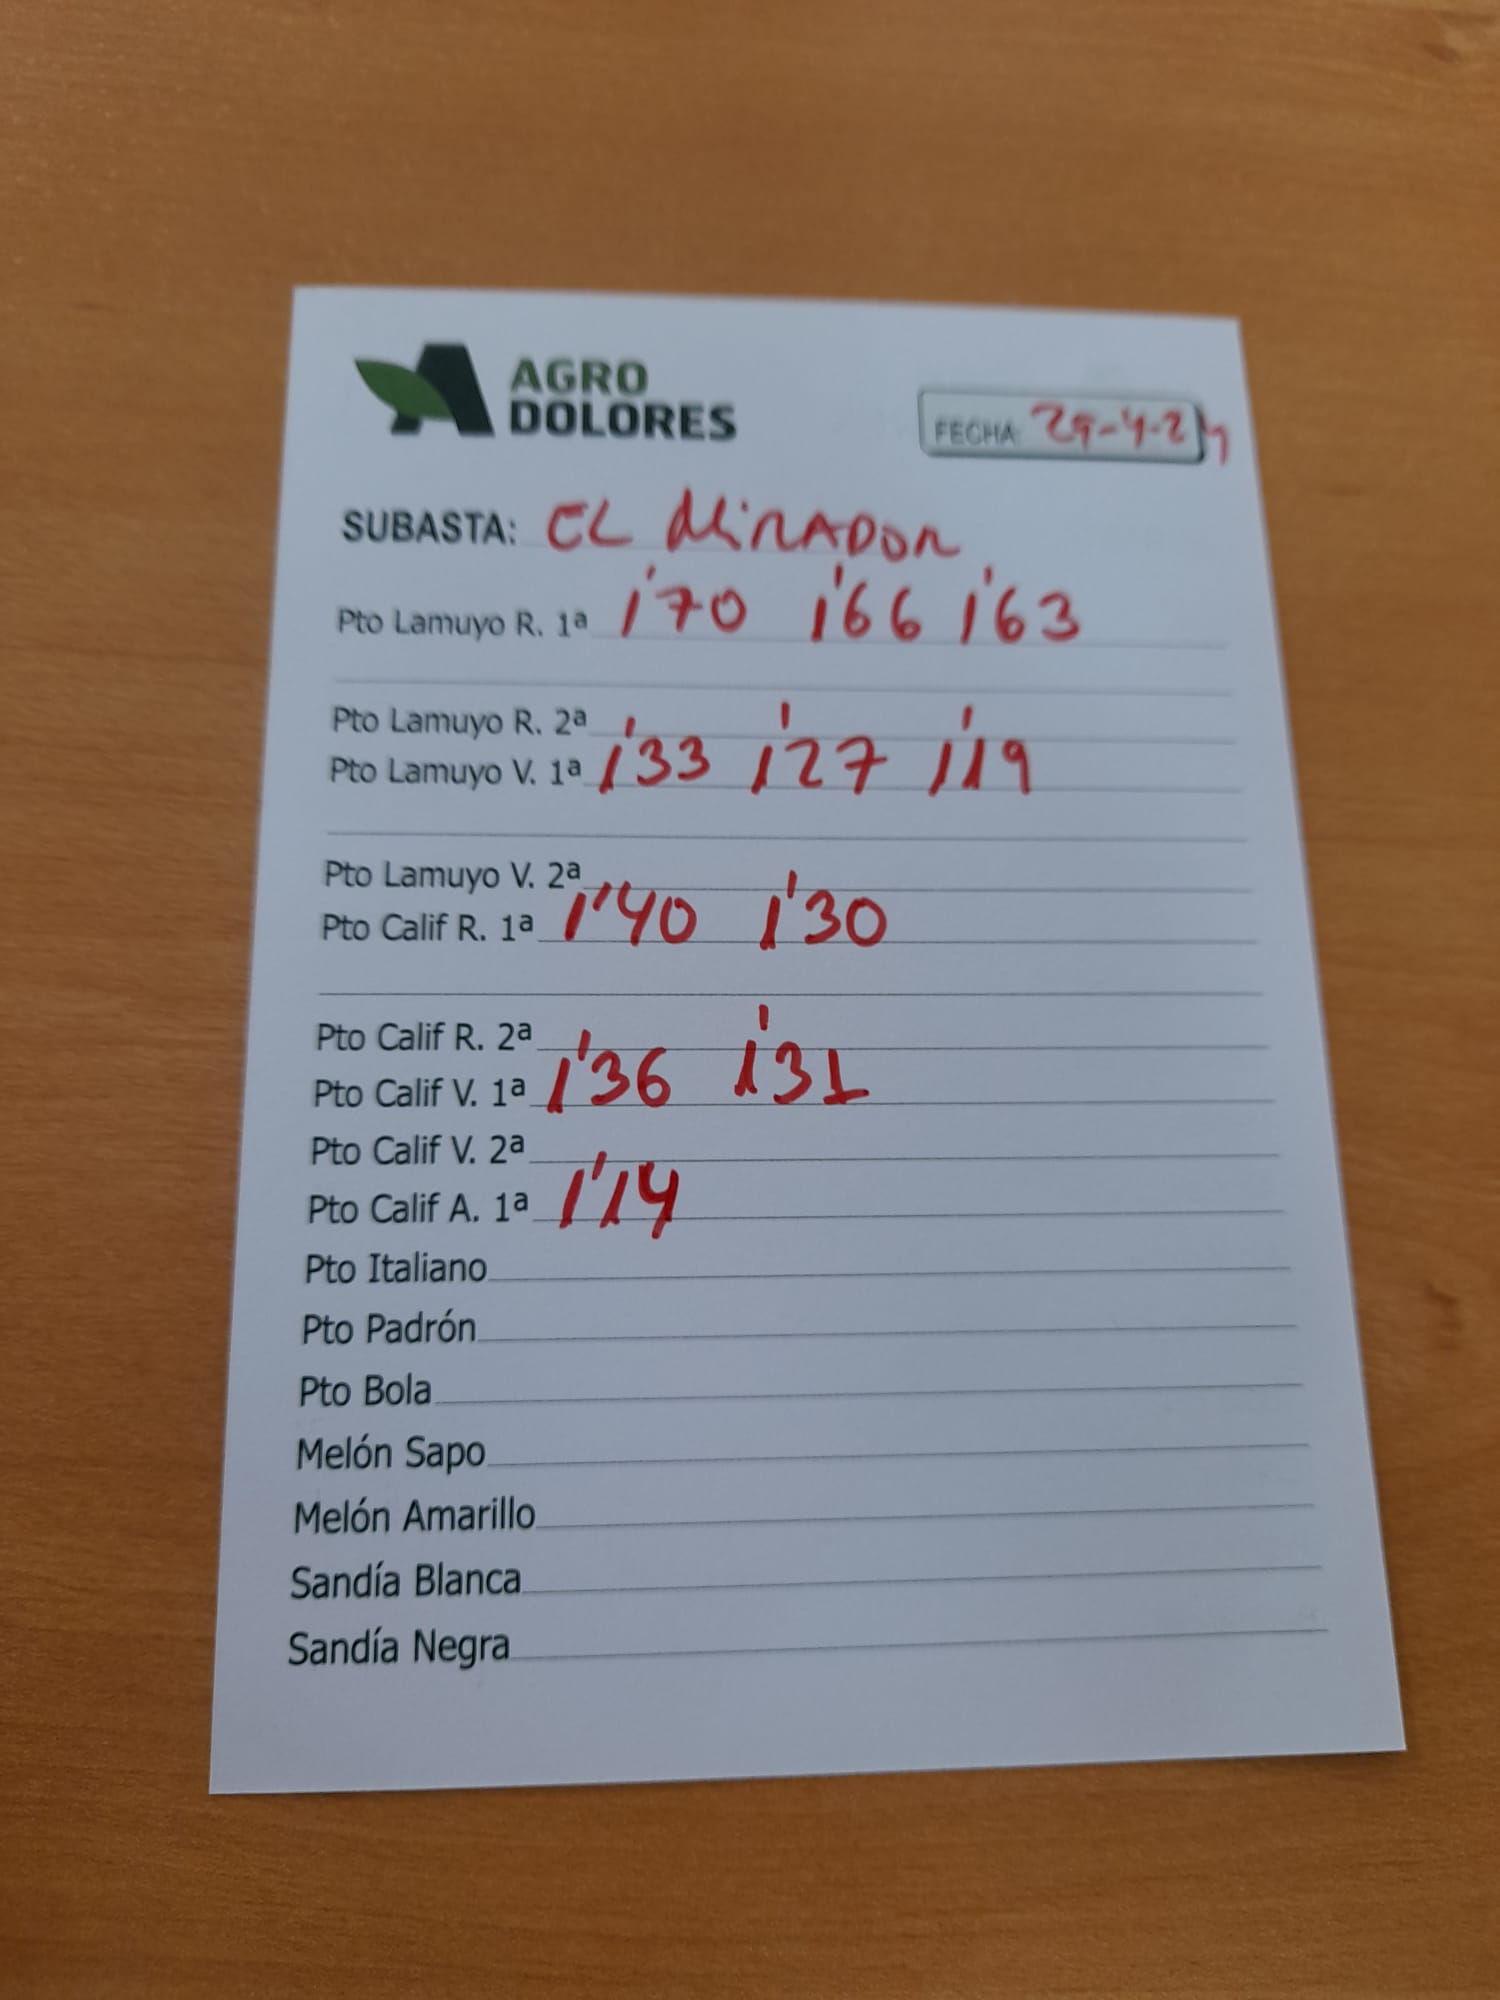 AGRO
DOLORES
FECHA: 29-4-24
SUBASTA: EL MIRADOR
Pto Lamuyo R. 1ª 1'70 1'66 1'63
Pto Lamuyo R. 2ª
Pto Lamuyo V. 1ª 1'33 1'27 1'19
Pto Lamuyo V. 2ª
Pto Calif R. 1ª 1'40 1'30
Pto Calif R. 2ª
Pto Calif V. 1ª 1'36 1'31
Pto Calif V. 2ª
Pto Calif A. 1ª 1'14
Pto Italiano
Pto Padrón
Pto Bola
Melón Sapo
Melón Amarillo
Sandía Blanca
Sandía Negra